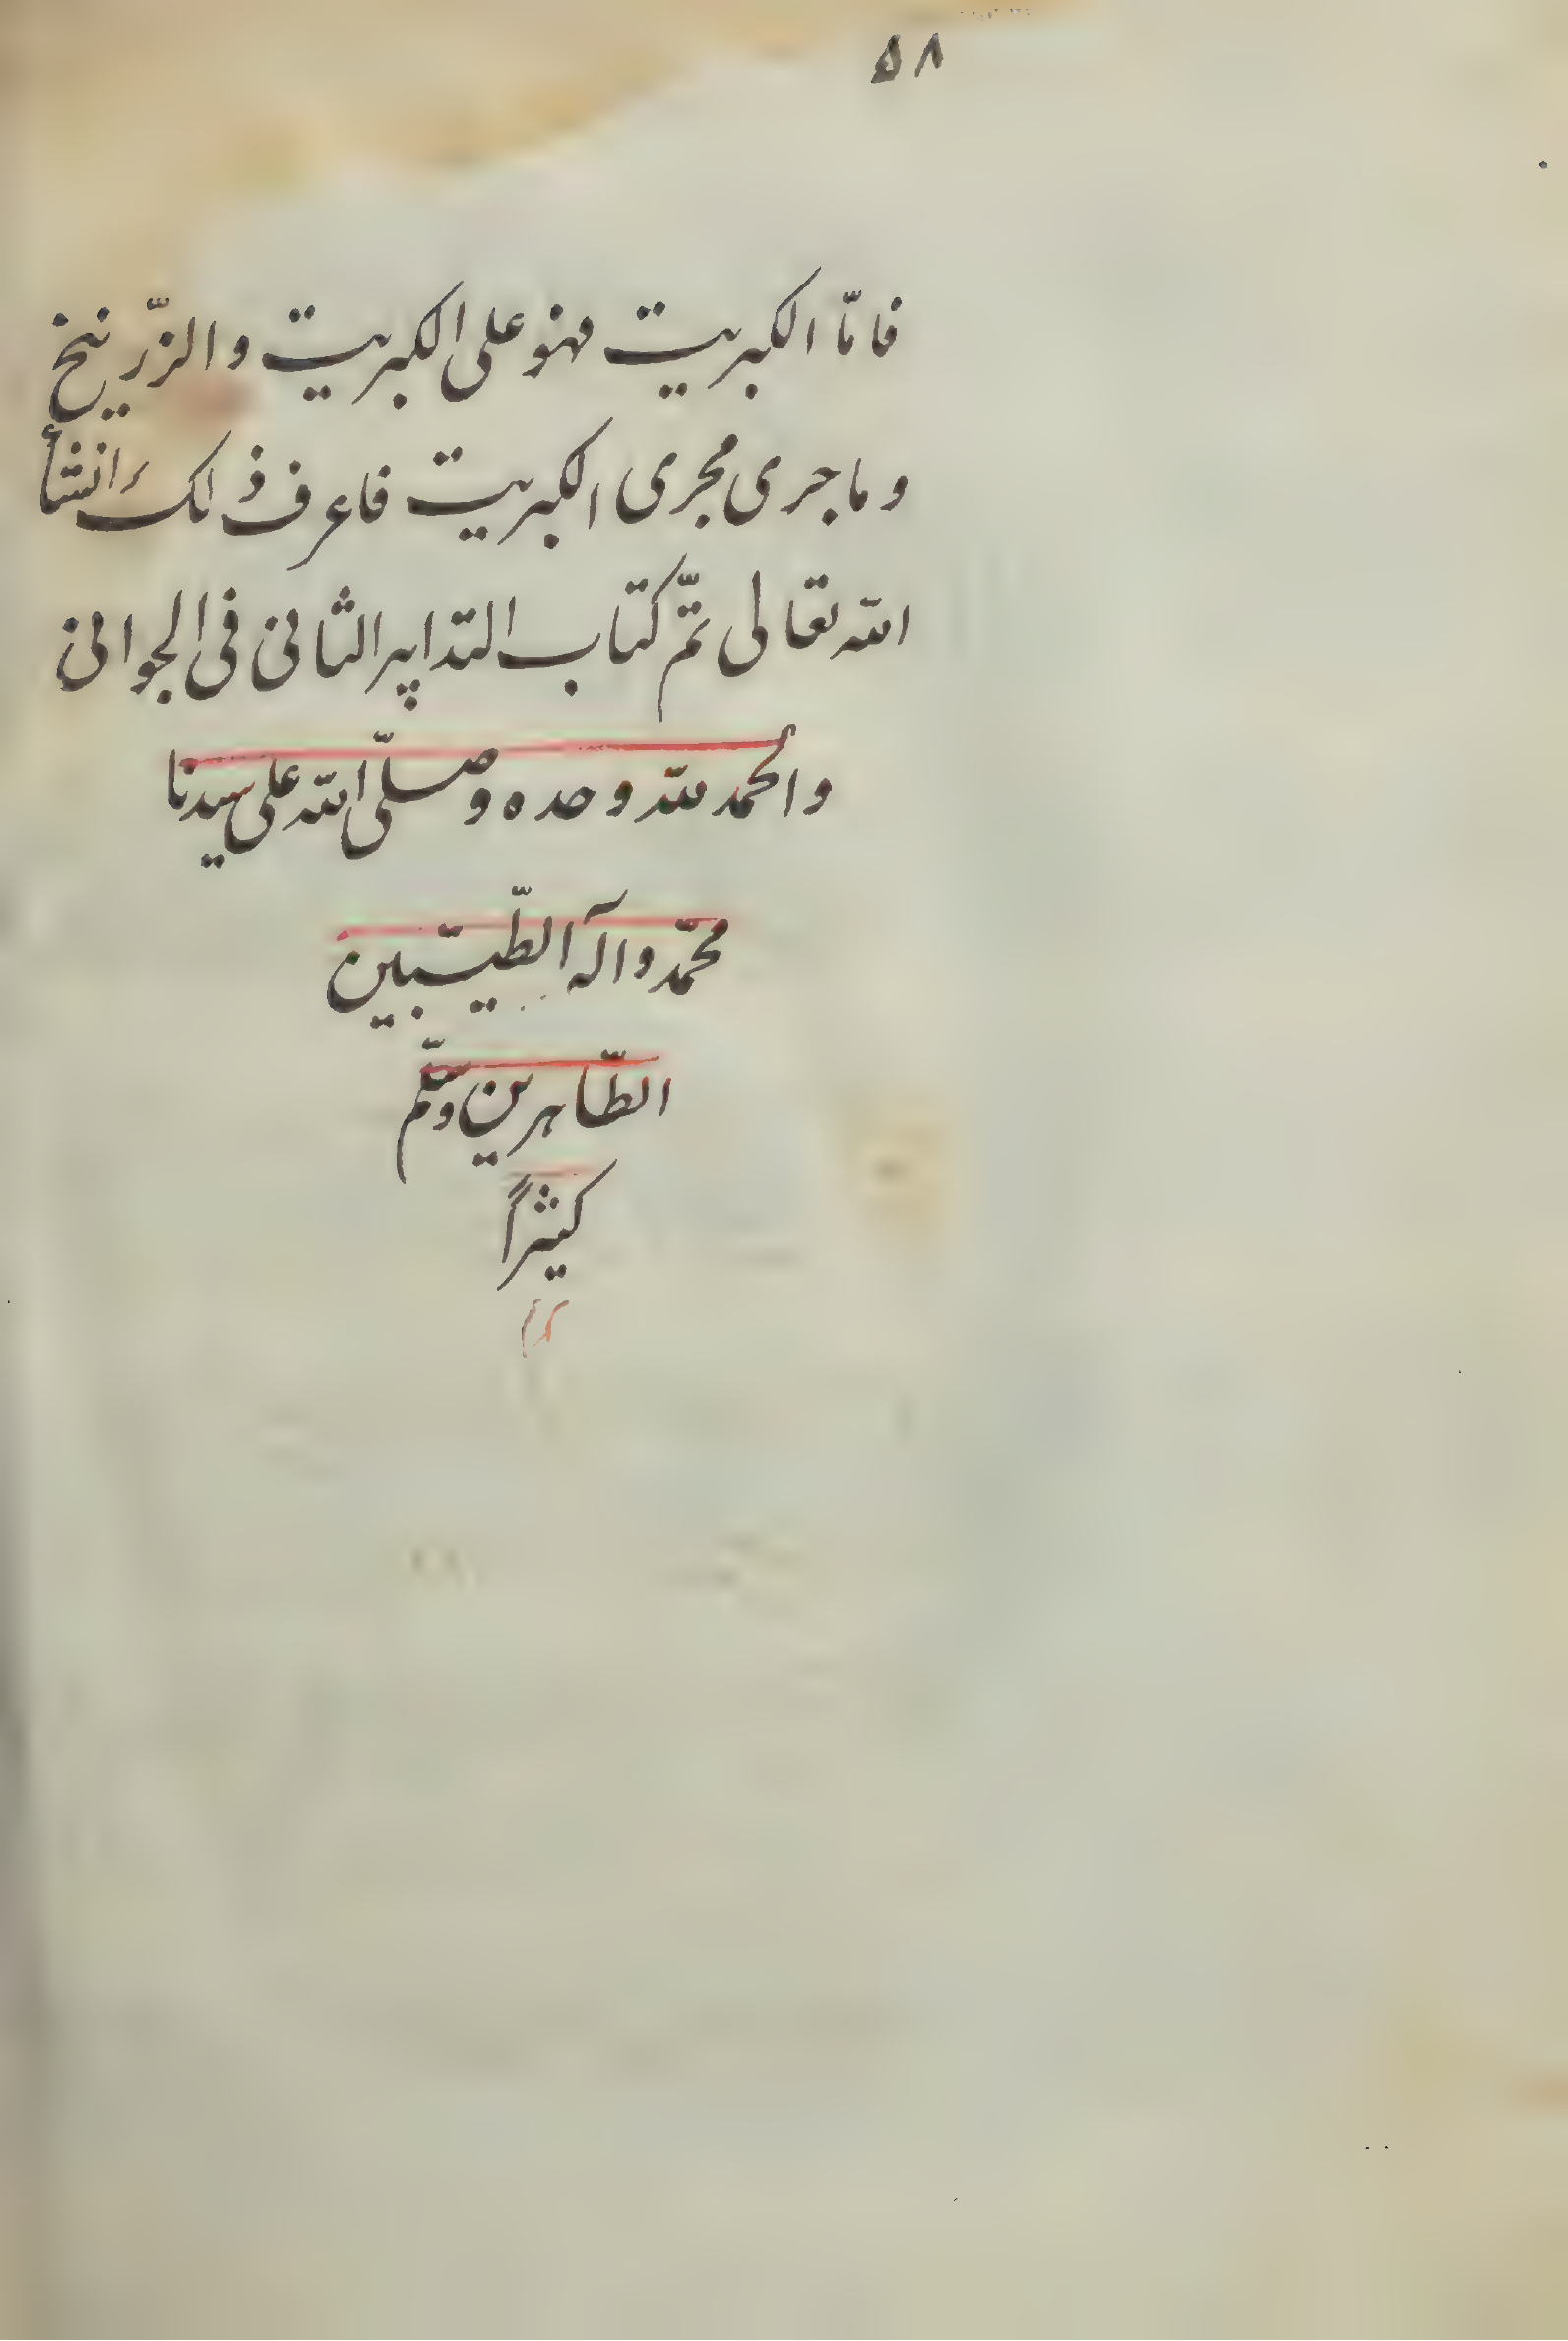 ۵۸
فامّا الكبريت فهو على الكبريت والزّرنيخ
وما جرى مجرى الكبريت فاعرف ذلك انشأ
الله تعالى تمّ كتاب التدابير الثانى فى الجوانى
والحمد لله وحده وصلّى الله على سيدنا
محمّد وآله الطّيّبين
الطّاهرين وسلّم
كثيراً